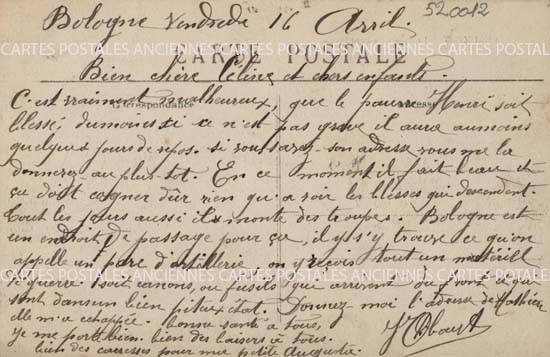 520012
Bologne Vendredi 16 Avril.
CARTES POSTALES ANCIENNES CARTES POSTALES ANCIENNES CARTES POSTALES
CARTE POSTALE
Bien chère Céline et chers enfants.
C'est vraiment malheureux, que le pauvre Henri soit
Correspondance Adresse
blessé, du moins si ce n'est pas grave il aura au moins
quelques jours de repos. si vous savez son adresse vous me la
donnerez au plus tôt. En ce moment il fait beau et
ça doit cogner dûr rien qu'a voir les blessés qui descendent.
tout les jours aussi il monte des troupes. Bologne est
un endroit de passage pour ça, il y s'y trouve ce qu'on
appelle un parc d'artillerie on y reçois tout un matériel
de guerre. soit canons, ou fusils qui arrivent du front ce qui
sont dans un bien piteux état. Donnez moi l'adresse de Mathieu
elle m'a échappée. bonne santé à tous,
je me porte bien. bien des baisers à tous.
bien des caresses pour ma petite Augusta.